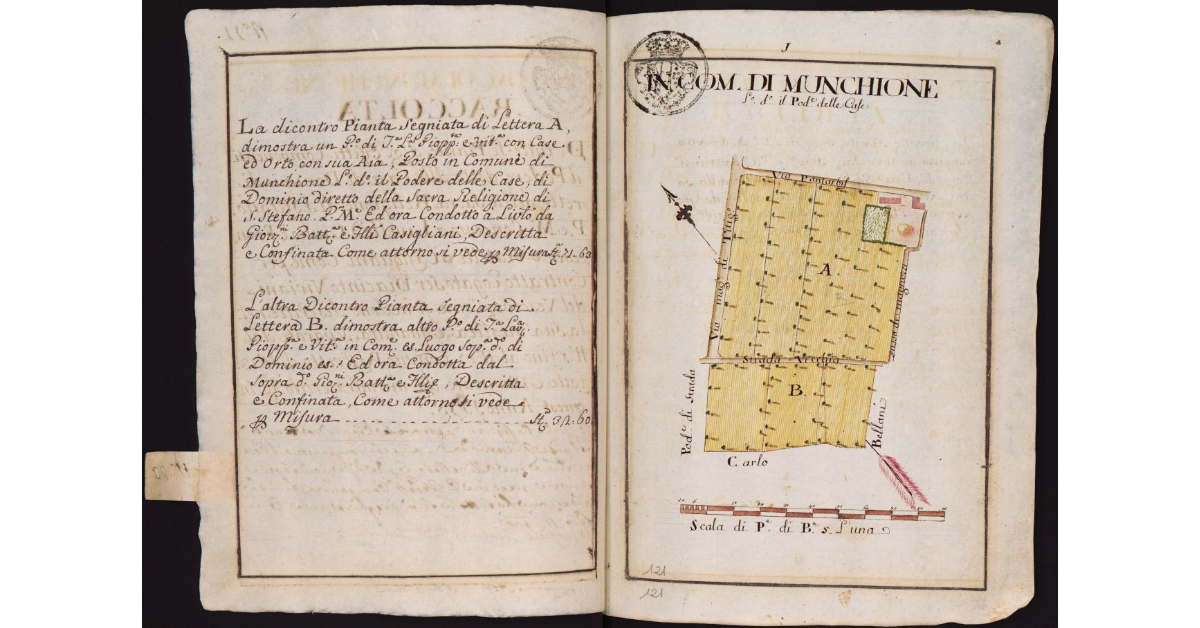 La dicontro Pianta Segniata di Lettera A,
dimostra un P.º di T.ª La.ª Piopp.ª e vit.ª con Case
ed Orto con sua Aia, Posto in Comune di
Munchione L.º d.º il Podere delle Case, di
Dominio diretto della Sacra Religione di
S. Stefano P.ª M.º Ed ora Condotto a Livlo da
Gio: Batt.ª e Flli Casigliani, Descritta
e Confinata Come attorno si vede, Misura St.ª 71-63
L'altra Dicontro Pianta Segniata di
Lettera B. dimostra altro P.º di T.ª Lav.ª
Piopp.ª e Vit.ª in Com.e es. Luogo Sop.º d.º di
Dominio es. Ed ora Condotta dal
Sopra d.º Gio: Batt.ª e Flli, Descritta
e Confinata, Come attorno si vede
Misura St.ª 32-60
J
IN COM. DI MUNCHIONE
L.º d.º il Pod.e delle Case
Via
A.
Via
Strada Vecchia
B.
Pod.e di Strada
Bellani
Carlo
Scala di P.e di B.ª s. l'una
121
121